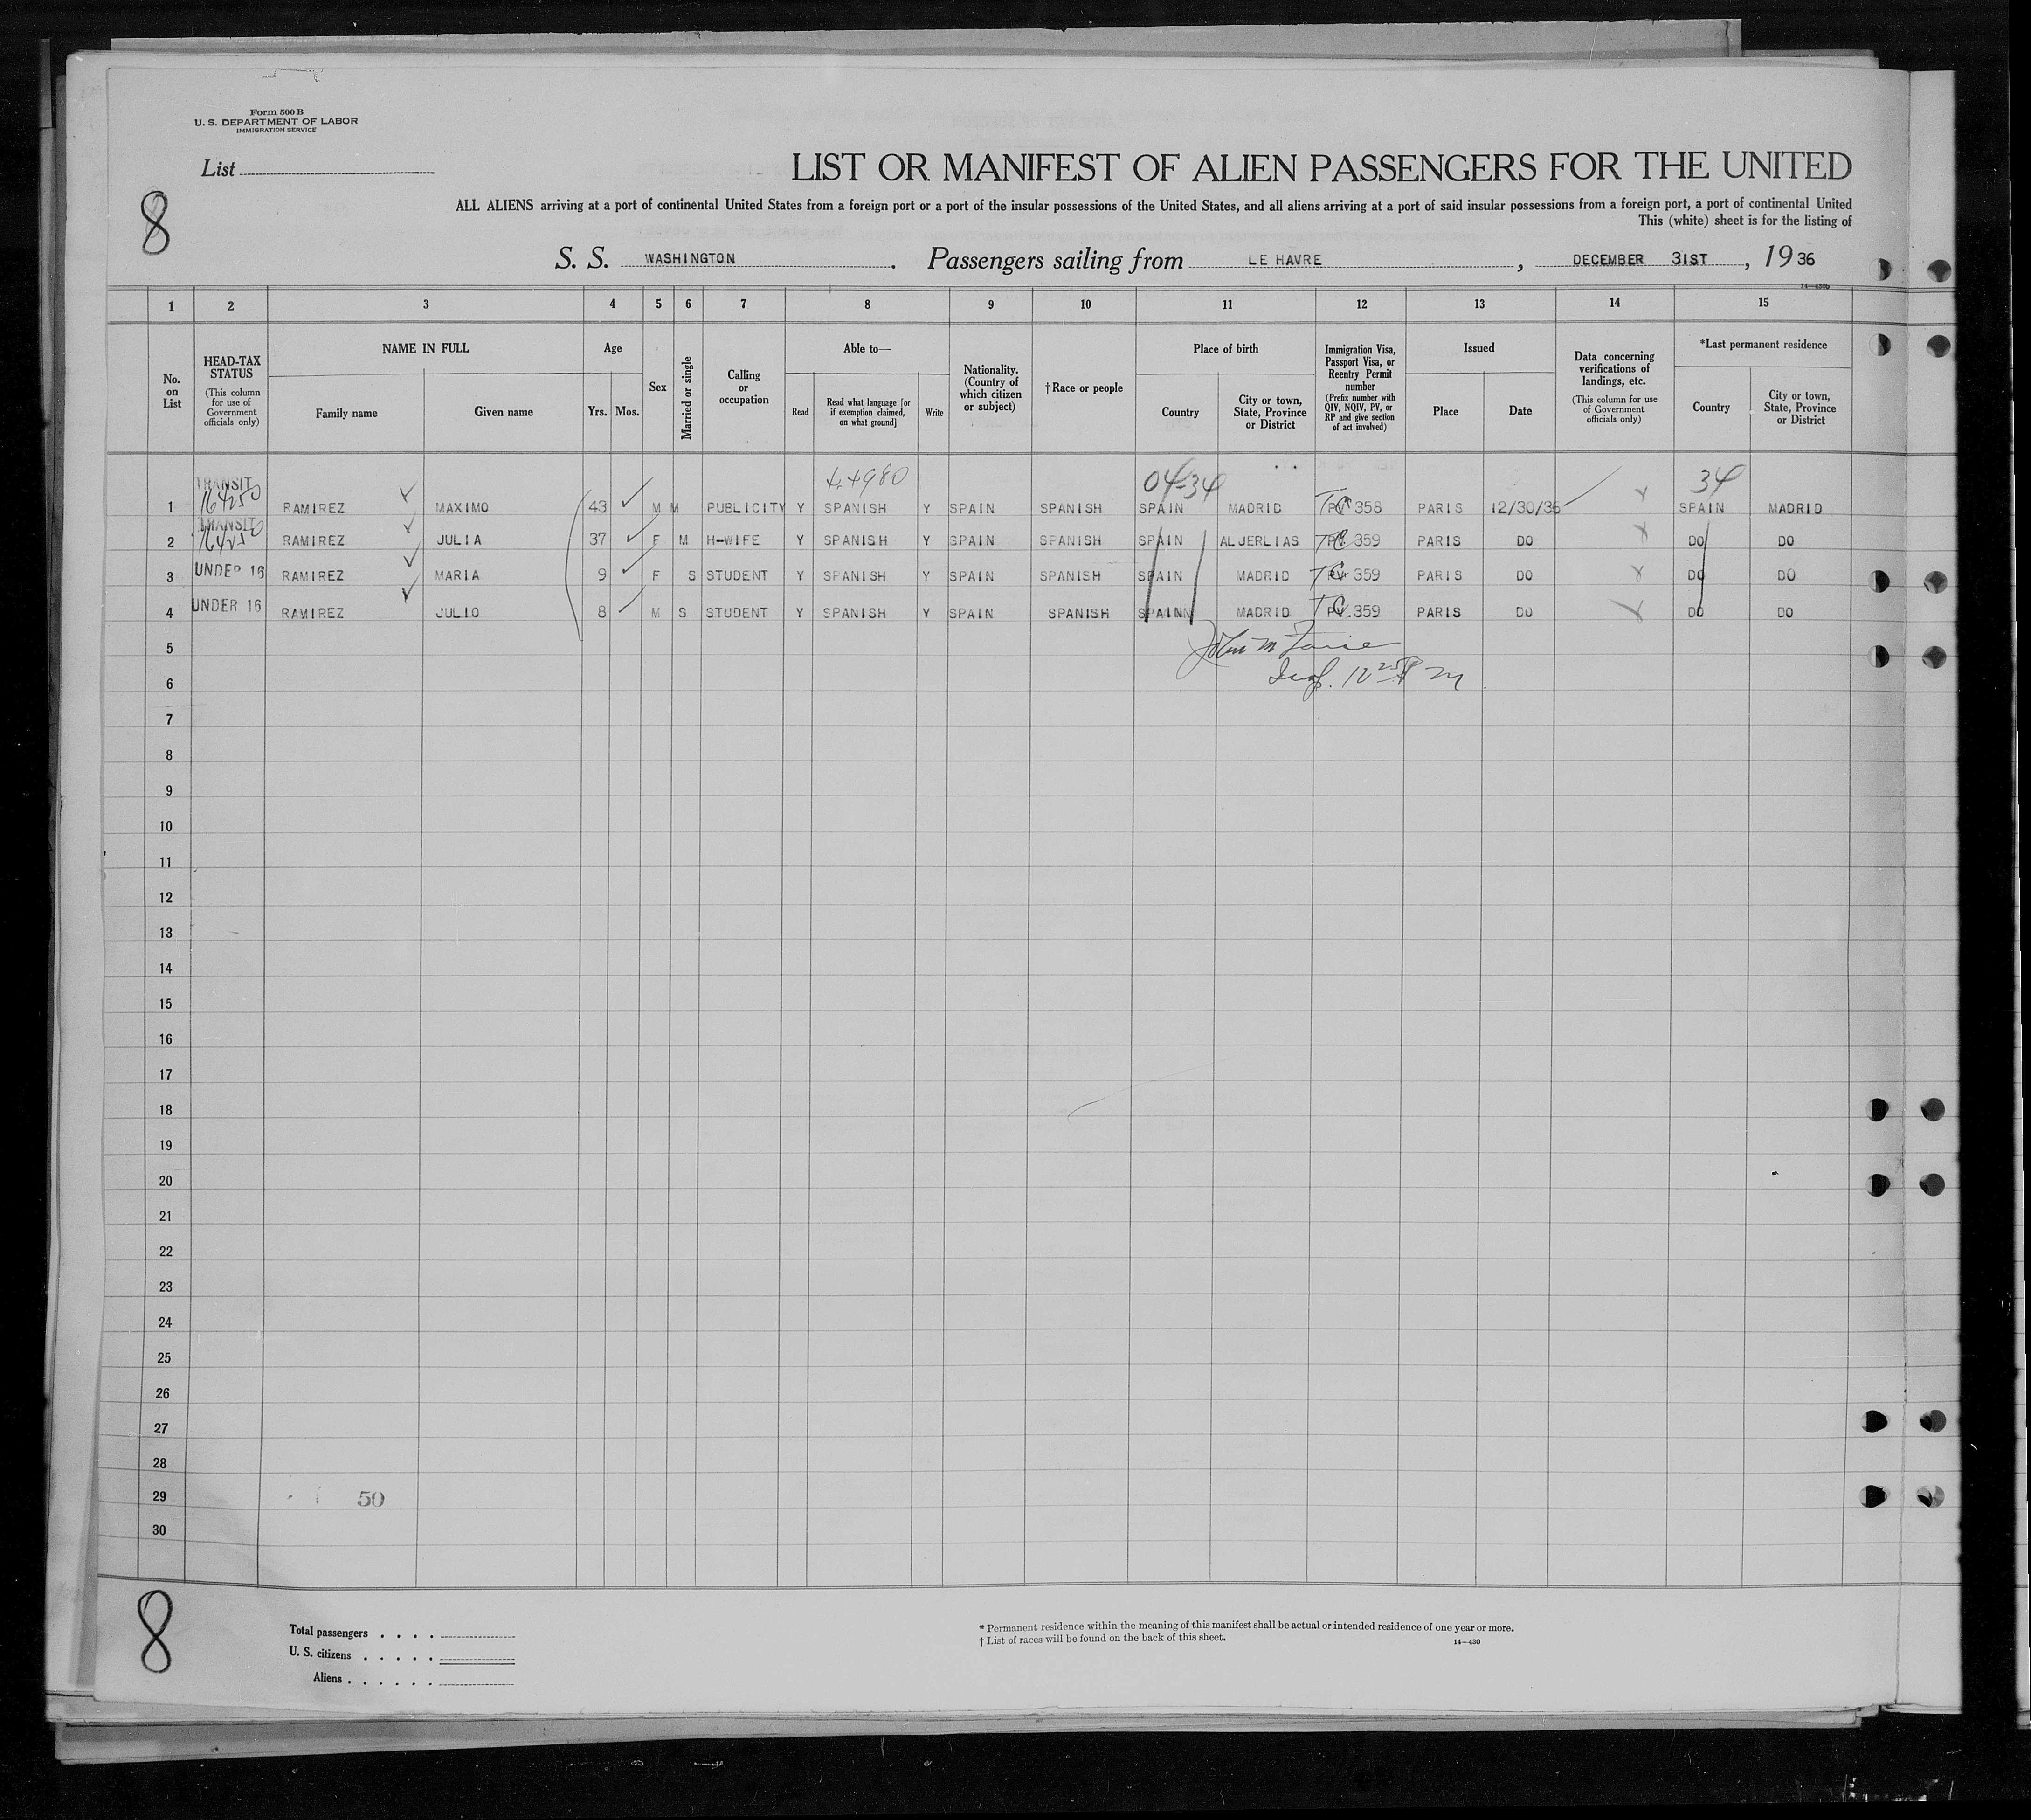 Form 500 B
U. S. DEPARTMENT OF LABOR
IMMIGRATION SERVICE
List
8
LIST OR MANIFEST OF ALIEN PASSENGERS FOR THE UNITED
ALL ALIENS arriving at a port of continental United States from a foreign port or a port of the insular possessions of the United States, and all aliens arriving at a port of said insular possessions from a foreign port, a port of continental United
This (white) sheet is for the listing of
S. S. WASHINGTON . Passengers sailing from LE HAVRE , DECEMBER 31ST , 19 36
14—430b
1 2 3 4 5 6 7 8 9 10 11 12 13 14 15
No. on List
HEAD-TAX STATUS (This column for use of Government officials only)
NAME IN FULL Family name Given name
Age Yrs. Mos.
Sex
Married or single
Calling or occupation
Able to— Read Read what language [or if exemption claimed, on what ground] Write
Nationality. (Country of which citizen or subject)
† Race or people
Place of birth Country City or town, State, Province or District
Immigration Visa, Passport Visa, or Reentry Permit number (Prefix number with QIV, NQIV, PV, or RP and give section of act involved)
Issued Place Date
Data concerning verifications of landings, etc. (This column for use of Government officials only)
*Last permanent residence Country City or town, State, Province or District
04-34 34
1 TRANSIT 16450 RAMIREZ MAXIMO 43 M M PUBLICITY Y SPANISH Y SPAIN SPANISH SPAIN MADRID TC 358 PARIS 12/30/36 SPAIN MADRID
2 TRANSIT 16450 RAMIREZ JULIA 37 F M H-WIFE Y SPANISH Y SPAIN SPANISH SPAIN ALJERLIAS TC 359 PARIS DO DO DO
3 UNDER 16 RAMIREZ MARIA 9 F S STUDENT Y SPANISH Y SPAIN SPANISH SPAIN MADRID TC 359 PARIS DO DO DO
4 UNDER 16 RAMIREZ JULIO 8 M S STUDENT Y SPANISH Y SPAIN SPANISH SPAINN MADRID TC 359 PARIS DO DO DO
5 John M
6
7
8
9
10
11
12
13
14
15
16
17
18
19
20
21
22
23
24
25
26
27
28
29 50
30
8
Total passengers . . . .
U. S. citizens . . . . .
Aliens . . . . . .
* Permanent residence within the meaning of this manifest shall be actual or intended residence of one year or more.
† List of races will be found on the back of this sheet. 14—430